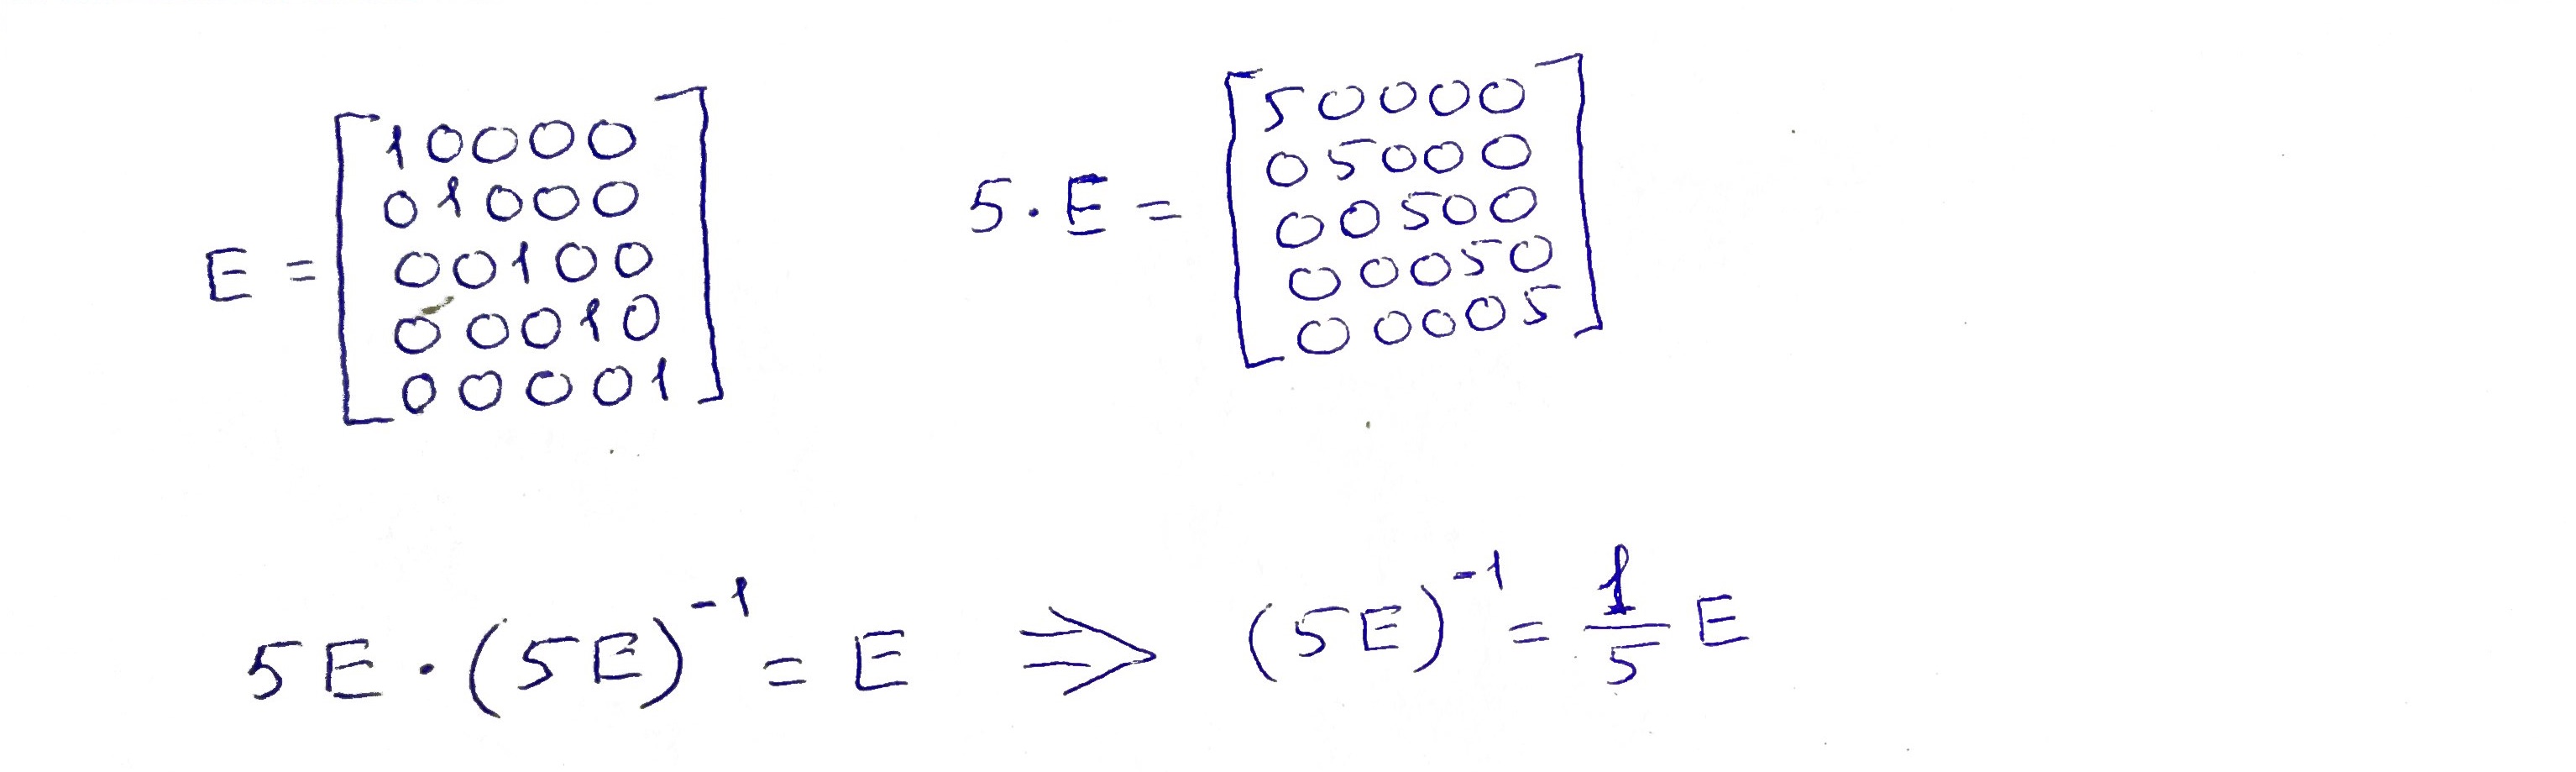 E = [1 0 0 0 0
0 1 0 0 0
0 0 1 0 0
0 0 0 1 0
0 0 0 0 1]
5 · E = [5 0 0 0 0
0 5 0 0 0
0 0 5 0 0
0 0 0 5 0
0 0 0 0 5]
5E · (5E)⁻¹ = E ⇒ (5E)⁻¹ = 1/5 E